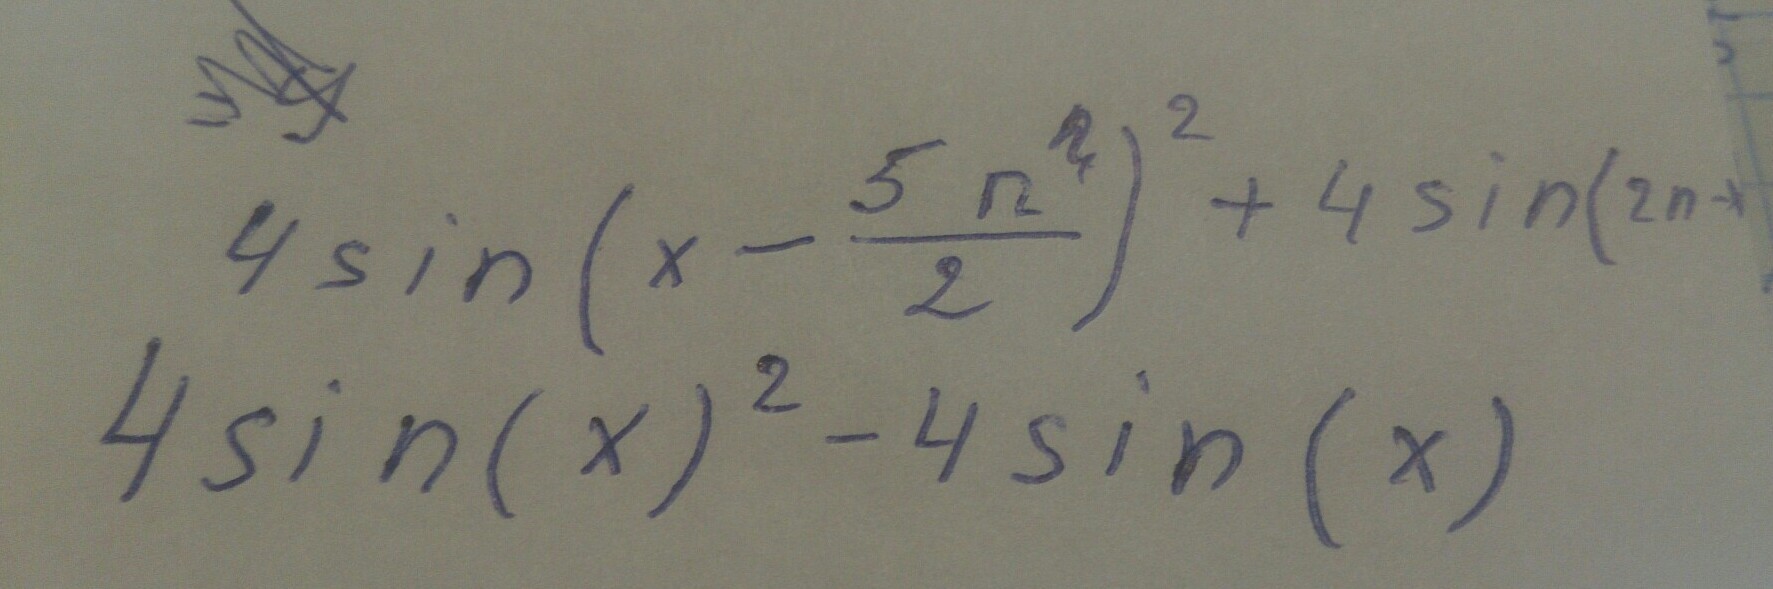 4 sin(x - 5π/2)² + 4 sin(2π-x
4 sin(x)² - 4 sin(x)